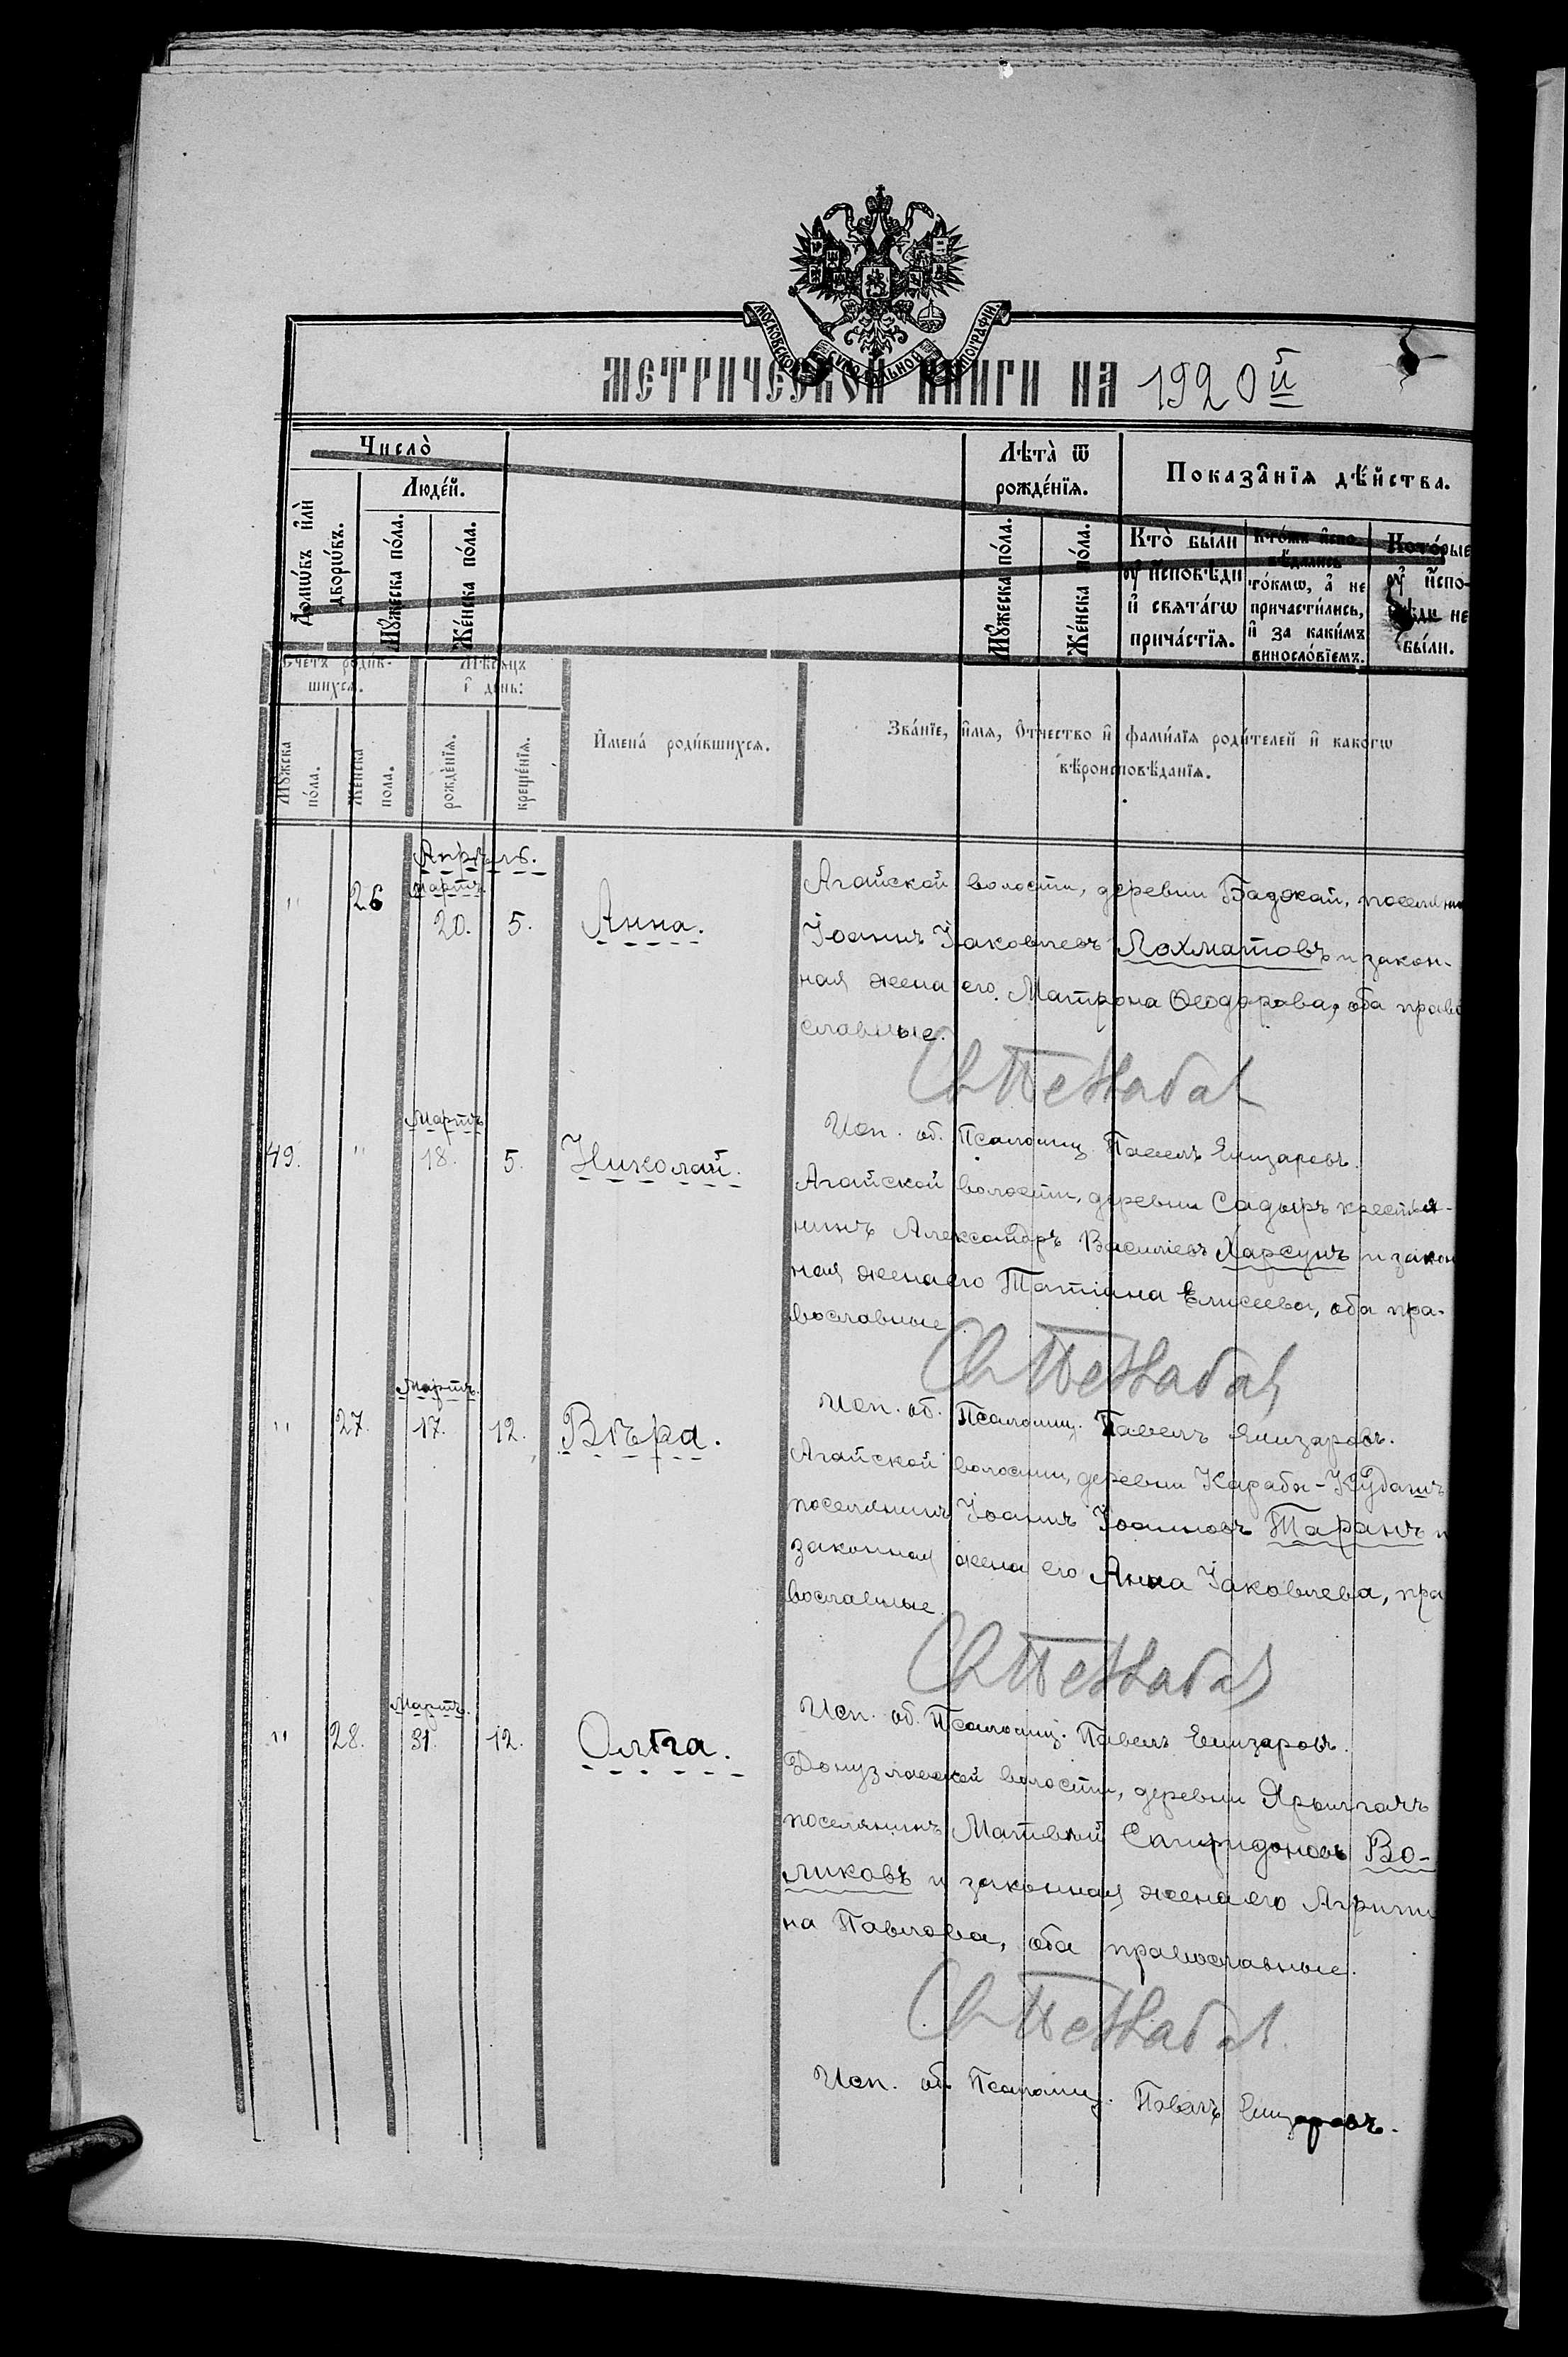 МОСКОВСКОЙ СѴНОДАЛЬНОЙ ТИПОГРАФІИ
МЕТРИЧЕСКОЙ КНИГИ НА 1920й
Число̀
Люде́й.
Домѡ́въ и҆лѝ дворѡ́въ.
Мꙋ́жеска по́ла.
Же́нска по́ла.
Лѣ́та ѿ рожде́нїѧ.
Мꙋ́жеска по́ла.
Же́нска по́ла.
Показа̑нїѧ дѣ́йства.
Кто̀ бы́ли ᲂу҆ и҆сповѣди и҆ свѧта́гѡ прича́стїѧ.
Кто́жи и҆спо-
вѣ́дались
то́кмѡ, а҆ не
причасти́лись,
и҆ за каки́мъ
виносло́вїемъ.
Кото́рые
ᲂу҆ и҆спо-
вѣди не
бы́ли.
Счетъ роди́в-
шихсѧ.
Мꙋ́жска по́ла.
Же́нска пола.
Мѣ́сѧцъ
и҆ день:
рожде́нїѧ.
креще́нїѧ.
И҆мена́ роди́вшихсѧ.
Зва́нїе, и҆́мѧ, ѻ҆́тчество и҆ фами́лїѧ роди́телей и҆ како́гѡ
вѣроисповѣ́данїѧ.
Апрѣль.
Мартъ.
" 26 20. 5. Анна.
Агайской волости, деревни Баджай, поселянин
Іоаннъ Іаковлевъ Лохматовъ и закон-
ная жена его Матрона Ѳеодорова, оба право
славные.
Исп. об. Псаломщ. Павелъ Елизаровъ.
Мартъ
49. " 18. 5. Николай.
Агайской волости, деревни Садыръ крестья-
нинъ Александръ Василіевъ Харсунъ и закон
ная жена его Татіана Елисеева, оба пра-
вославные
Исп. об. Псаломщ. Павелъ Елизаровъ.
Мартъ.
" 27. 17. 12. Вѣра.
Агайской волости, деревни Карабы-Кудашъ
поселянинъ Іоаннъ Іоанновъ Таранъ и
законная жена его Анна Іаковлева, пра
вославные.
Исп. об. Псаломщ. Павелъ Елизаровъ.
Мартъ.
" 28. 31. 12. Ольга.
Донузлавской волости, деревни Ярылгачъ
поселянинъ Матвѣй Спиридоновъ Во-
ликовъ и законная жена его Агрипи
на Павлова, оба православные.
Исп. об. Псаломщ. Павелъ Елизаровъ.